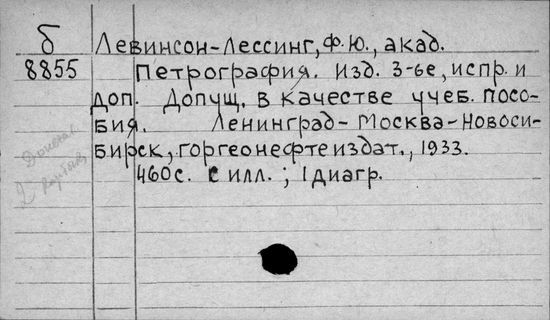 б Левинсон-Лессинг, Ф.Ю., акад.
8855 Петрография. Изд. 3-ье, испр. и
доп. Допущ. в качестве учеб. посо-
бия. Ленинград-Москва-Новоси-
бирск, горгеонефтеиздат., 1933.
460с. с илл.; 1 диагр.